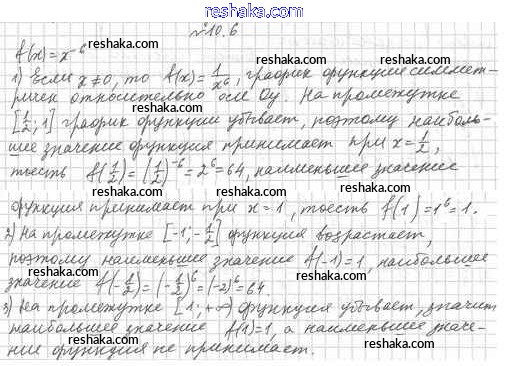 reshaka.com
№10.6
f(x)=x⁻⁶ reshaka.com reshaka.com
1) Если x≠0, то f(x)=1/x⁶, график функции симмет-
ричен относительно оси Oy. На промежутке
[1/2; 1] график функции убывает, поэтому наиболь-
шее значение функция принимает при x=1/2,
тоесть f(1/2)=(1/2)⁻⁶=2⁶=64, наименьшее значение
reshaka.com reshaka.com
функция принимает при x=1, тоесть f(1)=1⁶=1.
2) На промежутке [-1; -1/2] функция возрастает,
поэтому наименьшее значение f(-1)=1, наибольшее
значение f(-1/2)=(-1/2)⁻⁶=(-2)⁶=64.
3) На промежутке [1; +∞) функция убывает, значит
наибольшее значение f(1)=1, а наименьшее значе-
ние функция не принимает.
reshaka.com